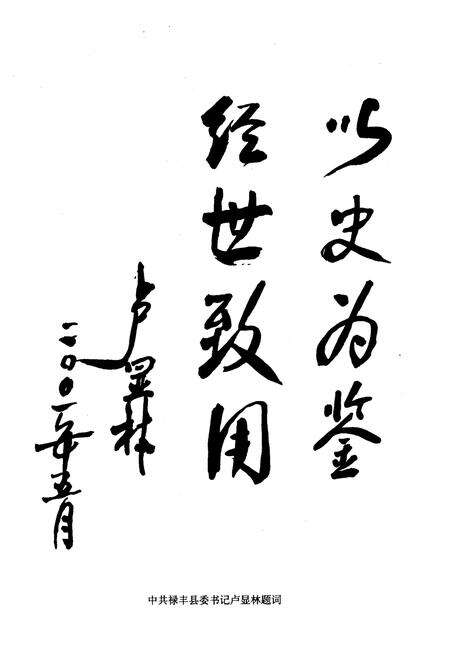 以史为鉴
经世致用
卢显林
二〇〇一年五月
中共禄丰县委书记卢显林题词